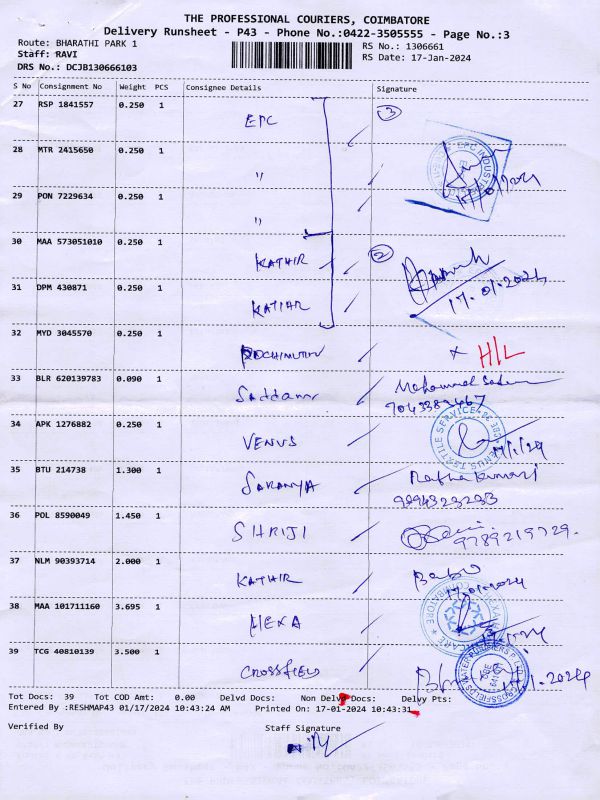 THE PROFESSIONAL COURIERS, COIMBATORE
Delivery Runsheet - P43 - Phone No.:0422-3505555 - Page No.:3
Route: BHARATHI PARK 1 RS No.: 1306661
Staff: RAVI RS Date: 17-Jan-2024
DRS No.: DCJB130666103
S No Consignment No Weight PCS Consignee Details Signature
27 RSP 1841557 0.250 1 EPC 3
28 MTR 2415650 0.250 1 "
29 PON 7229634 0.250 1 "
30 MAA 573051010 0.250 1 KATHIR 2
31 DPM 430871 0.250 1 KATHIR 17.01.2024
32 MYD 3045570 0.250 1 x H/L
33 BLR 620139783 0.090 1 Saddam Mohammed
34 APK 1276882 0.250 1 VENUS
35 BTU 214738 1.300 1 SARANYA Radhakumari
9994323233
36 POL 8590049 1.450 1 SHRIJI 9789219729.
37 NLM 90393714 2.000 1 KATHIR Babu
17.01.2024
38 MAA 101711160 3.695 1 HEXA
39 TCG 40810139 3.500 1 CROSSFIELD
Tot Docs: 39 Tot COD Amt: 0.00 Delvd Docs: Non Delvd Docs: Delvy Pts:
Entered By :RESHMAP43 01/17/2024 10:43:24 AM Printed On: 17-01-2024 10:43:31
Verified By Staff Signature